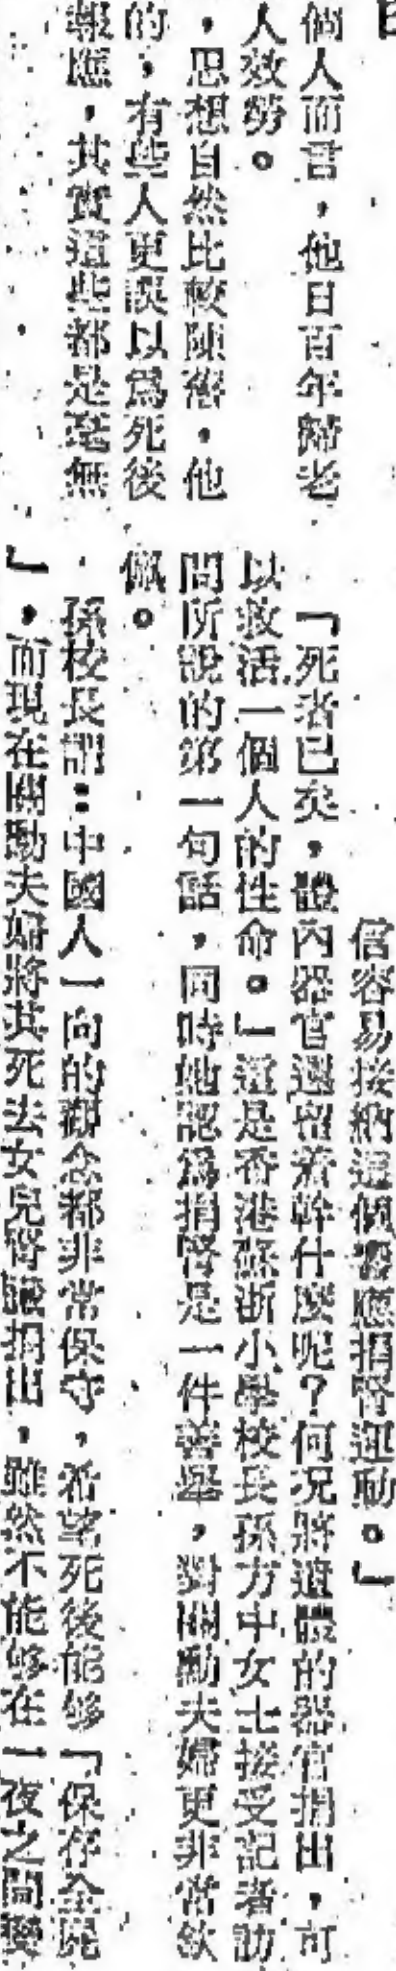 個人而言，他日百年歸老
人效勞。
，思想自然比較陳舊，他
的，有些人更誤以爲死後
報應，其實這些都是毫無
信容易接納這個響應捐腎運動。」
「死者已矣，體內器官還留着幹什麼呢？何況將遺體的器官捐出，可
以救活一個人的性命。」這是香港蘇浙小學校長孫方中女士接受記者訪
問所說的第一句話，同時她認爲捐腎是一件善舉，對關勳夫婦更非常欽
佩。
孫校長謂：中國人一向的觀念都非常保守，希望死後能够「保存全屍
」，而現在關勳夫婦將其死去女兒腎臟捐出，雖然不能够在一夜之間變